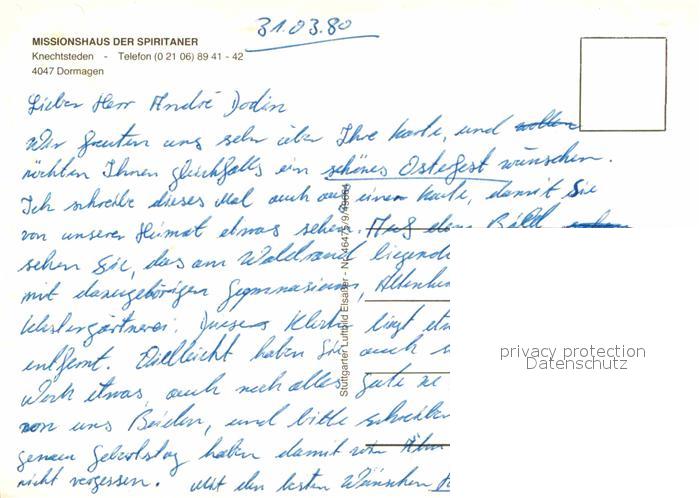 31.03.80
MISSIONSHAUS DER SPIRITANER
Knechtsteden - Telefon (0 21 06) 89 41 - 42
4047 Dormagen
Lieber Herr André Dodin
Wir freuten uns sehr über Ihre Karte, und wollen
möchten Ihnen gleichfalls ein schönes Osterfest wünschen.
Ich schreibe dieses Mal auch auf einer Karte, damit Sie
von unserer Heimat etwas sehen. Auf dem Bild
sehen Sie, das am Waldrand liegende
mit dazugehörigen Gymnasium,
Klostergärtnerei. Dieses Kloster liegt
entfernt. Vielleicht haben Sie auch
Werk etwas, auch noch alles Gute
von uns Beiden, und bitte schreiben
genauen Geburtstag haben damit wir ihn
nicht vergessen. Mit den besten Wünschen
Stuttgarter Luftbild Elsäßer - Nr.
privacy protection
Datenschutz